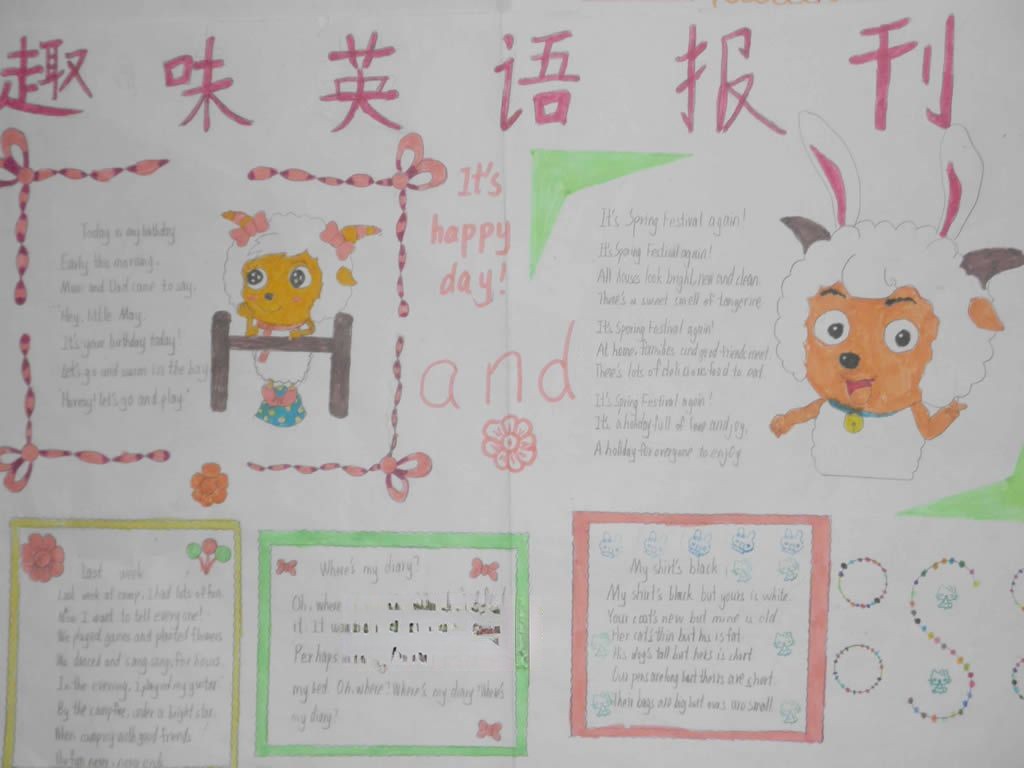 趣味英语报刊
It's
happy
day!
and
Today is my birthday
Early this morning.
Mum and Dad came to say.
Hey, little May.
It's your birthday today!
Let's go and swim in the bay
Hurray! let's go and play.
It's Spring Festival again!
It's Spring Festival again!
All houses look bright, new and clean.
There's a sweet smell of tangerine
It's Spring Festival again!
At home, families and good friends meet.
There's lots of delicious food to eat.
It's Spring Festival again!
It's a holiday full of love and joy.
A holiday for everyone to enjoy
Last week
Last week at camp, I had lots of fun.
Now I want to tell everyone!
We played games and planted flowers
We danced and sang song for hours.
In the evening, I played my guitar
By the campfire, under a bright star.
When camping with good friends
The fun never, never ends
Where's my diary?
Oh, where
it. It
Perhaps
my bed. Oh, where? Where's my diary? Where's
my diary?
My shirt's black
My shirt's black but yours is white.
Your coat's new but mine is old.
Her cat's thin but his is fat.
His dog's tall but hers is short
Our pens are long but theirs are short.
Their bags are big but ours are small